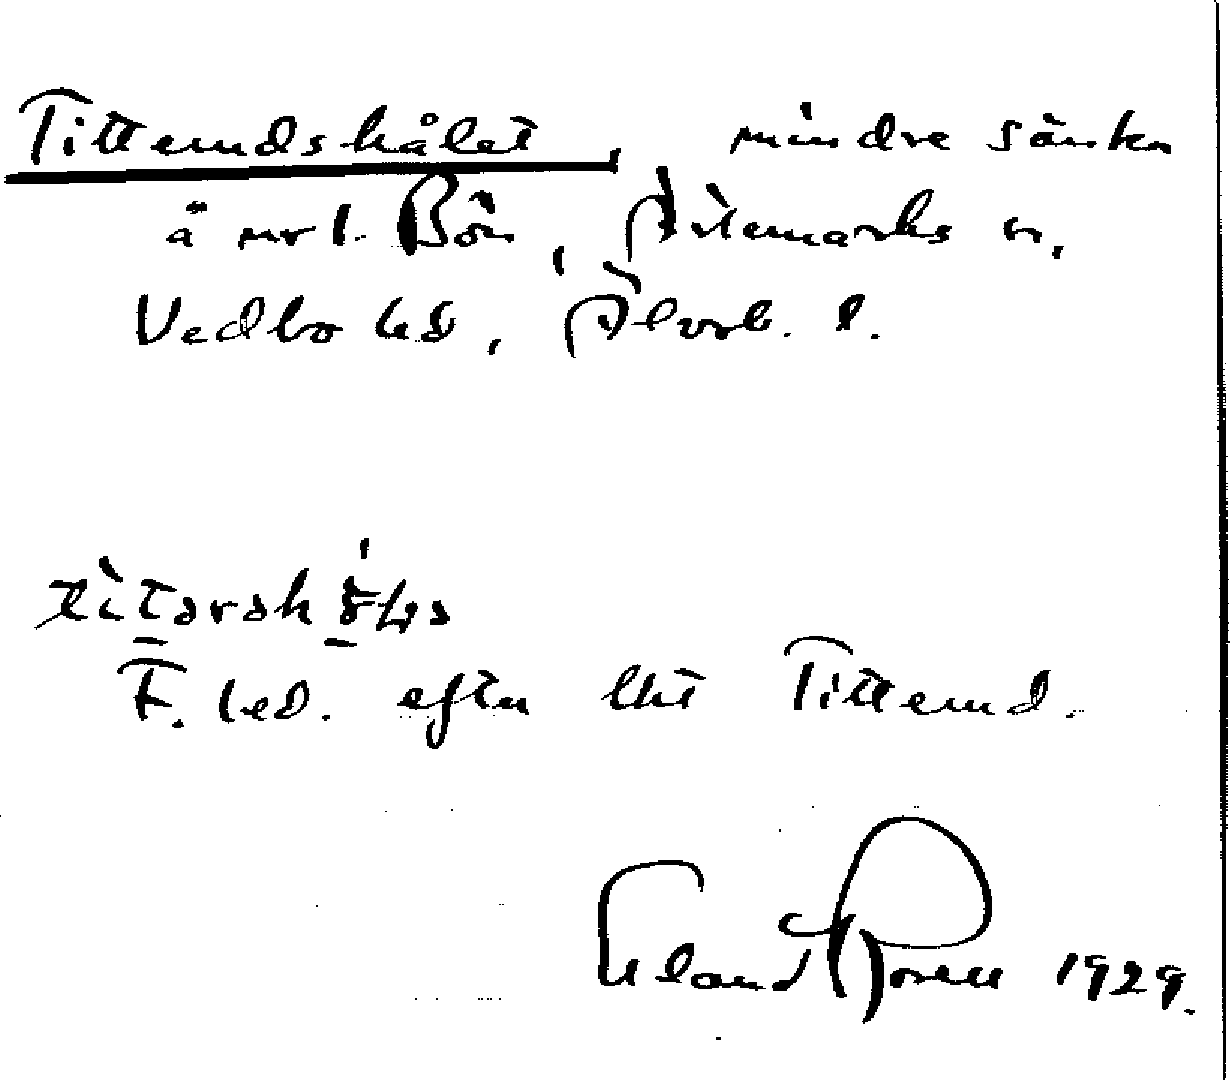 Titterudshålet, mindre sänka
å mr l. Bön, Ärtemarks sn,
Vedbo hd, Älvsb. l.
F. led. efter lht Titterud.
Erland Rosell 1929.